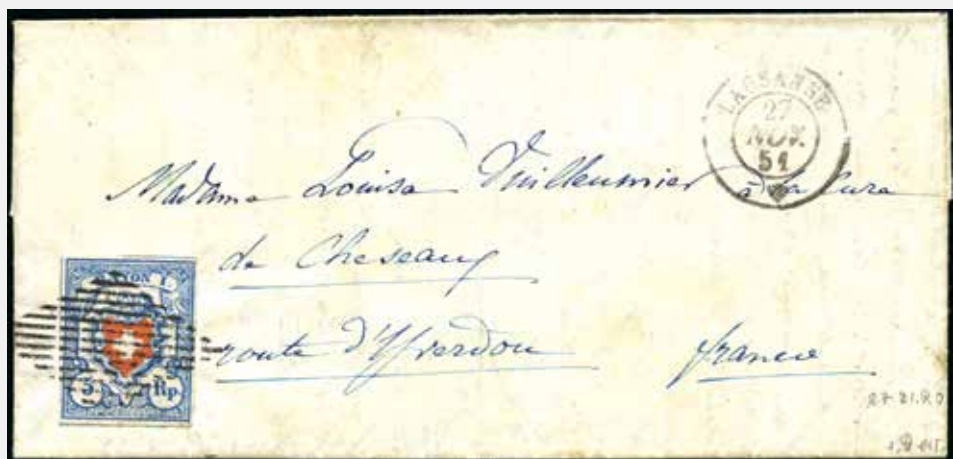 LAUSANNE
27
NOV.
51
Madame Louisa Vuilleumier à la Cure
de Cheseaux
route d'Yverdon franco
5 Rp